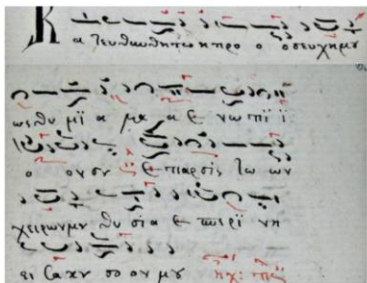 Κα τευθυυθητω η προ ο οσευχημȣ
ως θυ μϊ α μα α ε νωπϊ ϊ
ο ον σȣ ε παρσις τω ων
χειρων μȣ θυ σια ε σπερϊ νη
ει σακȣ σο ον μȣ